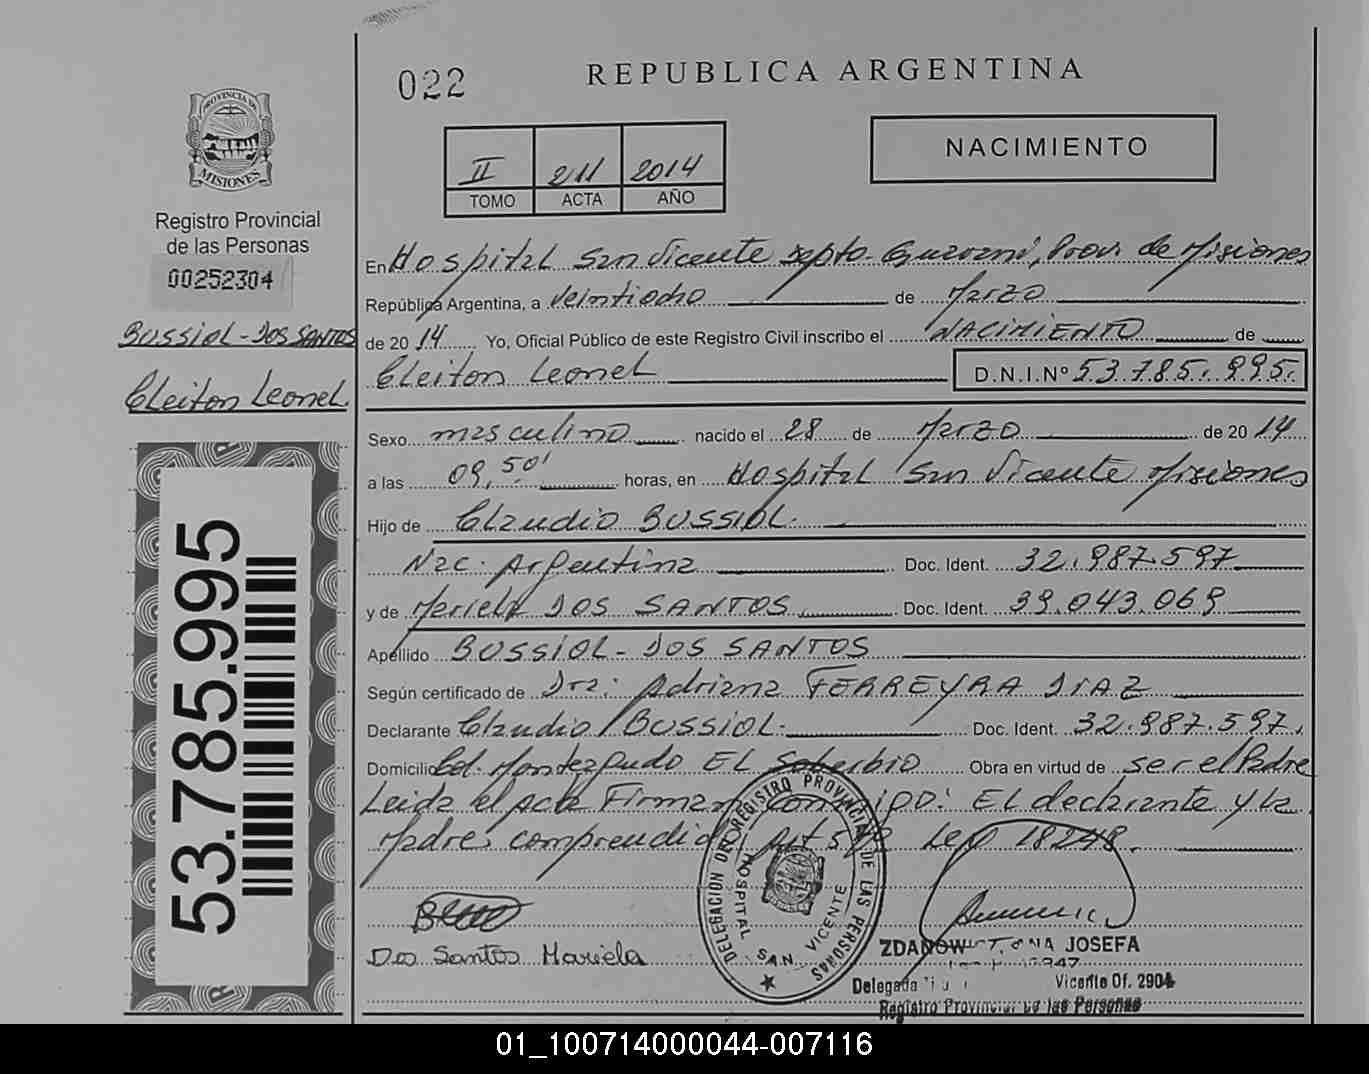 022
REPUBLICA ARGENTINA
NACIMIENTO
II 211 2014
TOMO ACTA AÑO
PROVINCIA DE
MISIONES
Registro Provincial
de las Personas
00252304
BUSSIOL - DOS SANTOS
Cleiton Leonel.
53.785.995
En Hospital San Vicente Depto. Guarani, Prov. de Misiones
República Argentina, a veintiocho de Marzo
de 20 14 Yo, Oficial Público de este Registro Civil inscribo el NACIMIENTO de
Cleiton Leonel D.N.I.Nº 53.785.995.
Sexo masculino nacido el 28 de Marzo de 20 14
a las 09,50' horas, en Hospital San Vicente Misiones
Hijo de Claudio BUSSIOL.
Nac. Argentina Doc. Ident. 32.987.597
y de Mariela DOS SANTOS Doc. Ident. 39.043.069
Apellido BUSSIOL - DOS SANTOS
Según certificado de Dra. Adriana FERREYRA DIAZ
Declarante Claudio BUSSIOL. Doc. Ident. 32.987.597.
Domicilio Col. Monteagudo EL Soberbio Obra en virtud de ser el Padre
Leida el acta Firman El declarante y la
Madre, Ley 18248.
Dos Santos Mariela
DELEGACION DEL REGISTRO PROVINCIAL DE LAS PERSONAS
HOSPITAL SAN VICENTE
JOSEFA
Delegada
Vicente Of. 2904
Registro Provincial de las Personas
01_100714000044-007116